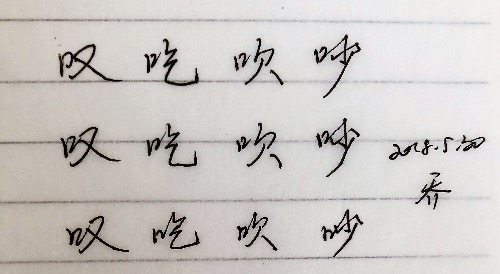 叹 吃 吹 吵
叹 吃 吹 吵 2018.5.30
乔
叹 吃 吹 吵